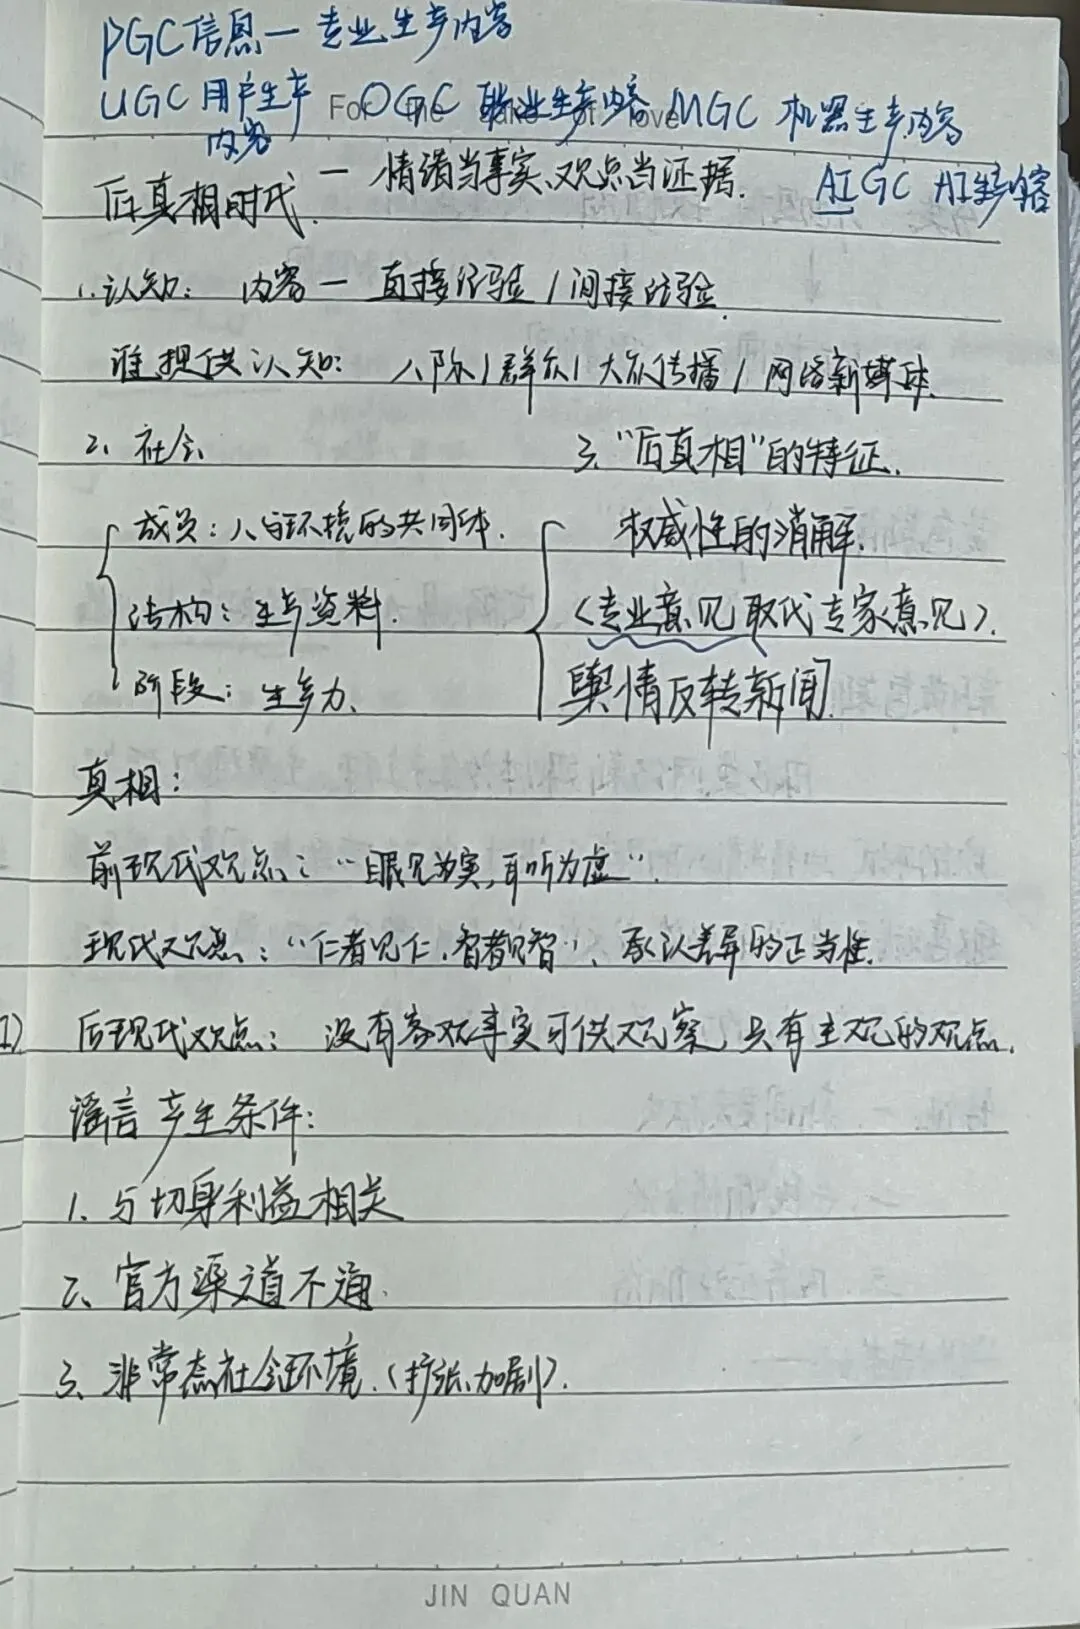 PGC信息一专业生产内容
UGC 用户生产内容 OGC 职业生产内容 MGC 机器生产内容
For the sake of love
后真相时代. 一 情绪当事实、观点当证据. AIGC AI生产内容
1. 认知: 内容 一 直接经验 / 间接经验.
谁提供认知: 人际 / 群众 / 大众传播 / 网络新媒体.
2、社会
成员: 人与环境的共同体.
结构: 生产资料.
阶段: 生产力、
3、“后真相”的特征.
权威性的消解.
(专业意见取代专家意见).
舆情反转新闻.
真相:
前现代观点: “眼见为实,耳听为虚”.
现代观点: “仁者见仁,智者见智”、承认差异的正当性.
后现代观点: 没有客观事实可供观察,只有主观的观点.
谣言产生条件:
1、与切身利益相关
2、官方渠道不通.
3、非常态社会环境.(扩张、加剧).
JIN QUAN